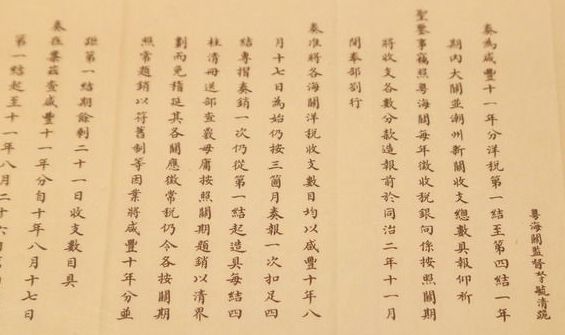 粵海關監督臣毓清跪
奏為咸豐十一年分洋稅第一結至第四結一年
期內大關並潮州新關收支總數具報仰祈
聖鑒事竊照粵海關每年徵收稅銀向係按照關期
將收支各數分款造報前於同治二年十一月
間奉部劄行
奏准將各海關洋稅收支數目均以咸豐十年八
月十七日為始仍按三箇月奏報一次扣足四
結專摺奏銷一次仍從第一結起造具每結四
柱清冊送部查覈毋庸按照關期題銷以清界
劃而免稽延其各關應徵常稅仍令各按關期
照常題銷以符舊制等因業將咸豐十年分並
距第一結期餘剩二十一日收支數目具
奏在案茲查咸豐十一年分自十年八月十七日
第一結起至十一年八月二十六日